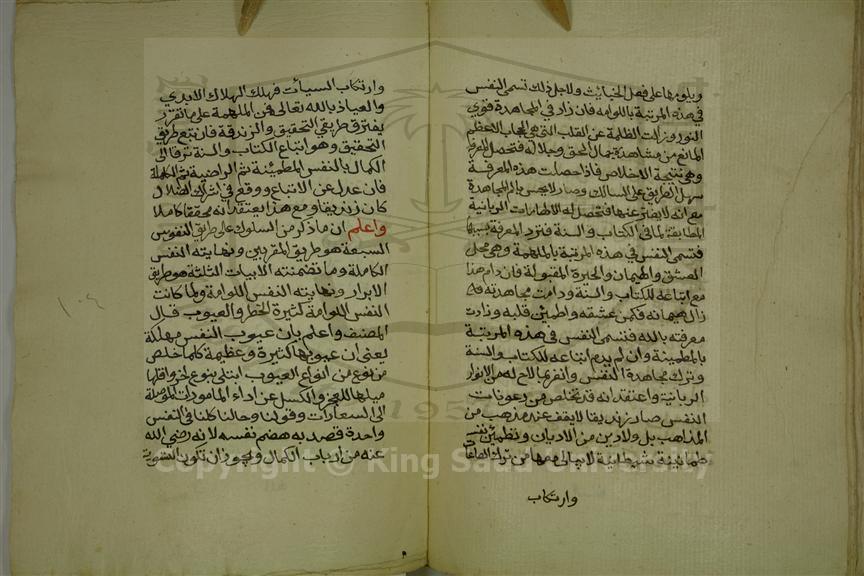 ويلومها على فعل الخبائث ولاجل ذلك تسمى النفس
في هذه المرتبة باللوامه فان زاد في المجاهدة قوي
النور وزالت الظلمة عن القلب التي هي الحجاب الاعظم
المانع من مشاهدة جمال الحق وجلاله فتحصل المعرفة
وهي نتيجة الاخلاص فاذا حصلت هذه المعرفة
سهل الطريق على السالك وصار لا يحس بالم المجاهدة
مع انه لا يفتر عنها فتحصل له الالهامات الربانية
المطابقة لما في الكتاب والسنة فتزد المعرفة بسببها
فتسمى النفس في هذه المرتبة بالملهمة وهي محل
العشق والهيمان والحيرة المقبولة فان دام هذا
مع اتباعه للكتاب والسنة ودامت مجاهدته
زال هيمانه فكمن عشقه واطمئن قلبه وزادت
معرفته بالله فتسمى النفس في هذه المرتبة
بالمطمينة وان لم يدم اتباعه للكتاب والسنة
وترك مجاهدة النفس واغتر بما لاح له من الانوار
الربانية واعتقد انه قد تخلص من رعونات
النفس صار زنديقا لا يقف عند مذهب من
المذاهب بل ولا دين من الاديان وتطمئن نفسه
طمانينة شيطانية لا يبالى معها من ترك الطاعات
وارتكاب
وارتكاب السيأت فهلك الهلاك الابدي
والعياذ بالله تعالى فمن الملهمة على ما تقرر
يفترق طريقي التحقيق والزندقة فان تبع طريق
التحقيق وهو اتباع الكتاب والسنة ترقا الى
الكمال بالنفس المطمئنة ثم الراضية ثم الكاملة
فان عدل عن الاتباع ووقع في اشراك الضلال
كان زنديقا ومع هذا يعتقد انه محققا كاملا
واعلم ان ما ذكر من السلوك على طريق النفوس
السبعة هو طريق المقربين ونهايته النفس
الكاملة وما تضمنته الابيات الثلثة هو طريق
الابرار ونهايته النفس اللوامة ولما كانت
النفس اللوامة كثيرة الخطر والعيوب قال
المصنف واعلم بان عيوب النفس مهلكة
يعني ان عيوبها كثيرة وعظيمة كلما خلص
من نوع من انواع العيوب ابتلى بنوع اخر واقلها
ميلها للعجز والكسل عن اداء المامورات الموصلة
الى السعادات وقوله وحالنا كلنا في النفس
واحدة قصد به هضم نفسه لانه رضي الله
عنه من ارباب الكمال ويجوز ان تكون التسوية
Copyright © King Saud University
195